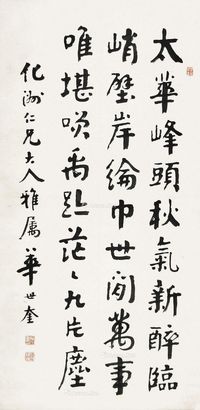 太華峰頭秋氣新醉臨
峭壁岸綸巾世間萬事
唯堪唉禹跡茫々九片塵
化洲仁兄大人雅屬 華世奎